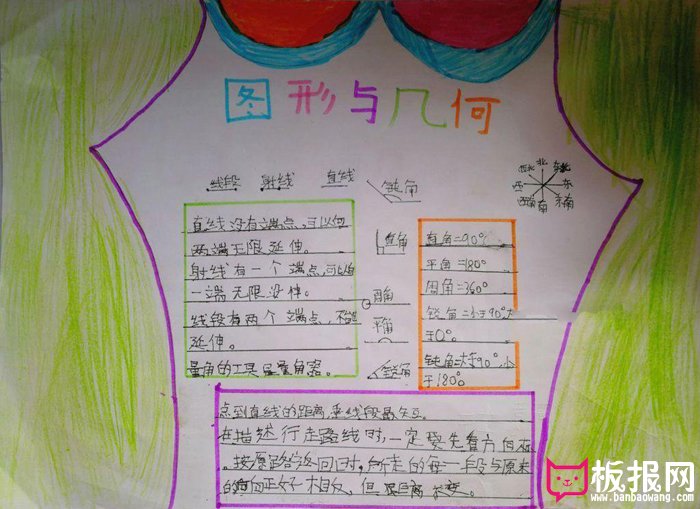 图形与几何
线段 射线 直线 钝角
西北 北 东北
西 东
西南 南 东南
直线没有端点,可以向
两端无限延伸。
射线有一个端点,可以向
一端无限延伸。
线段有两个端点,不能
延伸。
量角的工具是量角器。
直角
周角
平角
锐角
直角=90°
平角=180°
周角=360°
锐角=小于90°大
于0°。
钝角=大于90°,小
于180°。
点到直线的距离,垂线段最短。
在描述行走路线时,一定要先看方向在
按原路返回时,所走的每一段与原来
的方向正好相反,但是距离不变。
板报网
www.banbaowang.com